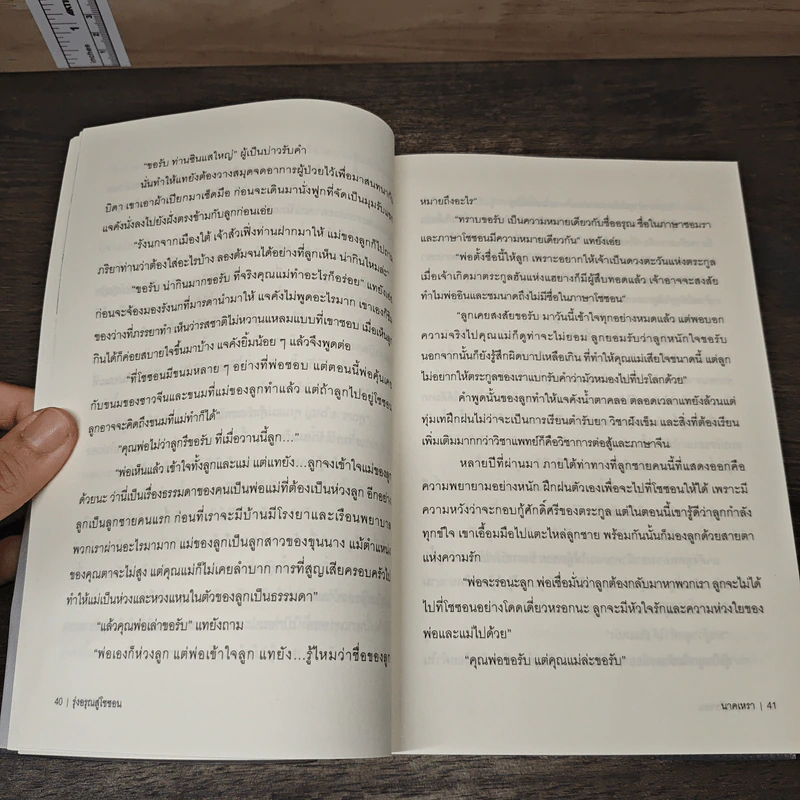 "ขอรับ ท่านซินแสใหญ่" ผู้เป็นบ่าวรับคำ
นั่นทำให้แทยังต้องวางสมุดจดอาการผู้ป่วยไว้เพื่อมาสนทนากับ
บิดา เขาเอาผ้าเปียกมาเช็ดมือ ก่อนจะเดินมานั่งฟูกที่จัดเป็นมุมรับแขก
แจคังนั่งลงไปยังฝั่งตรงข้ามกับลูกก่อนเอ่ย
"รังนกจากเมืองใต้ เจ้าสัวเฟิ่งท่านฝากมาให้ แม่ของลูกก็ไปถาม
ภริยาท่านว่าต้องใส่อะไรบ้าง ลองต้มจนได้อย่างที่ลูกเห็น น่ากินไหมล่ะ"
"ขอรับ น่ากินมากขอรับ ที่จริงคุณแม่ทำอะไรก็อร่อย" แทยังเอ่ย
ก่อนจะจ้องมองรังนกที่มารดานำมาให้ แจคังไม่พูดอะไรมาก เขาเอง
ของว่างที่ภรรยาทำ เห็นว่ารสชาติไม่หวานแหลมแบบที่เขาชอบ เมื่อเห็นลูก
กินได้ก็ค่อยสบายใจขึ้นมาบ้าง แจคังยิ้มน้อย ๆ แล้วจึงพูดต่อ
"ที่โชซอนมีขนมหลาย ๆ อย่างที่พ่อชอบ แต่ตอนนี้พ่อคุ้นเคย
กับขนมของชาวจีนและขนมที่แม่ของลูกทำแล้ว แต่ถ้าลูกไปอยู่โชซอน
ลูกอาจจะคิดถึงขนมที่แม่ทำก็ได้"
"คุณพ่อไม่ว่าลูกรึขอรับ ที่เมื่อวานนี้ลูก..."
"พ่อเห็นแล้ว เข้าใจทั้งลูกและแม่ แต่แทยัง...ลูกจงเข้าใจแม่ของลูก
ด้วยนะ ว่านี่เป็นเรื่องธรรมดาของคนเป็นพ่อแม่ที่ต้องเป็นห่วงลูก อีกอย่าง
ลูกเป็นลูกชายคนแรก ก่อนที่เราจะมีบ้านมีโรงยาและเรือนพยาบาล
พวกเราผ่านอะไรมามาก แม่ของลูกเป็นลูกสาวของขุนนาง แม้ตำแหน่ง
ของคุณตาจะไม่สูง แต่คุณแม่ก็ไม่เคยลำบาก การที่สูญเสียครอบครัวไป
ทำให้แม่เป็นห่วงและหวงแหนในตัวของลูกเป็นธรรมดา"
"แล้วคุณพ่อเล่าขอรับ" แทยังถาม
"พ่อเองก็ห่วงลูก แต่พ่อเข้าใจลูก แทยัง...รู้ไหมว่าชื่อของลูก
40 | รุ่งอรุณสู่โชซอน
หมายถึงอะไร"
"ทราบขอรับ เป็นความหมายเดียวกับชื่ออรุณ ชื่อในภาษาซอมรา
และภาษาโชซอนมีความหมายเดียวกัน" แทยังเอ่ย
"พ่อตั้งชื่อนี้ให้ลูก เพราะอยากให้เจ้าเป็นดวงตะวันแห่งตระกูล
เมื่อเจ้าเกิดมาตระกูลฮันแห่งแฮยางก็มีผู้สืบทอดแล้ว เจ้าอาจจะสงสัย
ทำไมพ่ออินและชมนาดถึงไม่มีชื่อในภาษาโชซอน"
"ลูกเคยสงสัยขอรับ มาวันนี้เข้าใจทุกอย่างหมดแล้ว แต่พอบอก
ความจริงไปคุณแม่ก็ดูท่าจะไม่ยอม ลูกยอมรับว่าลูกหนักใจขอรับ
นอกจากนั้นก็ยังรู้สึกผิดบาปเหลือเกิน ที่ทำให้คุณแม่เสียใจขนาดนี้ แต่ลูก
ไม่อยากให้ตระกูลของเราแบกรับคำว่ามัวหมองไปที่ปรโลกด้วย"
คำพูดนั้นของลูกทำให้แจคังน้ำตาคลอ ตลอดเวลาแทยังล้วนแต่
ทุ่มเทฝึกฝน ไม่ว่าจะเป็นการเรียนตำรับยา วิชาฝังเข็ม และสิ่งที่ต้องเรียน
เพิ่มเติมมากกว่าวิชาแพทย์ก็คือวิชาการต่อสู้และภาษาจีน
หลายปีที่ผ่านมา ภายใต้ท่าทางที่ลูกชายคนนี้ที่แสดงออกคือ
ความพยายามอย่างหนัก ฝึกฝนตัวเองเพื่อจะไปที่โชซอนให้ได้ เพราะมี
ความหวังว่าจะกอบกู้ศักดิ์ศรีของตระกูล แต่ในตอนนี้เขารู้ดีว่าลูกกำลัง
ทุกข์ใจ เขาเอื้อมมือไปแตะไหล่ลูกชาย พร้อมกันนั้นก็มองลูกด้วยสายตา
แห่งความรัก
"พ่อจะรอนะลูก พ่อเชื่อมั่นว่าลูกต้องกลับมาหาพวกเรา ลูกจะไม่ได้
ไปที่โชซอนอย่างโดดเดี่ยวหรอกนะ ลูกจะมีหัวใจรักและความห่วงใยของ
พ่อและแม่ไปด้วย"
"คุณพ่อขอรับ แต่คุณแม่ล่ะขอรับ"
นาคเหรา | 41